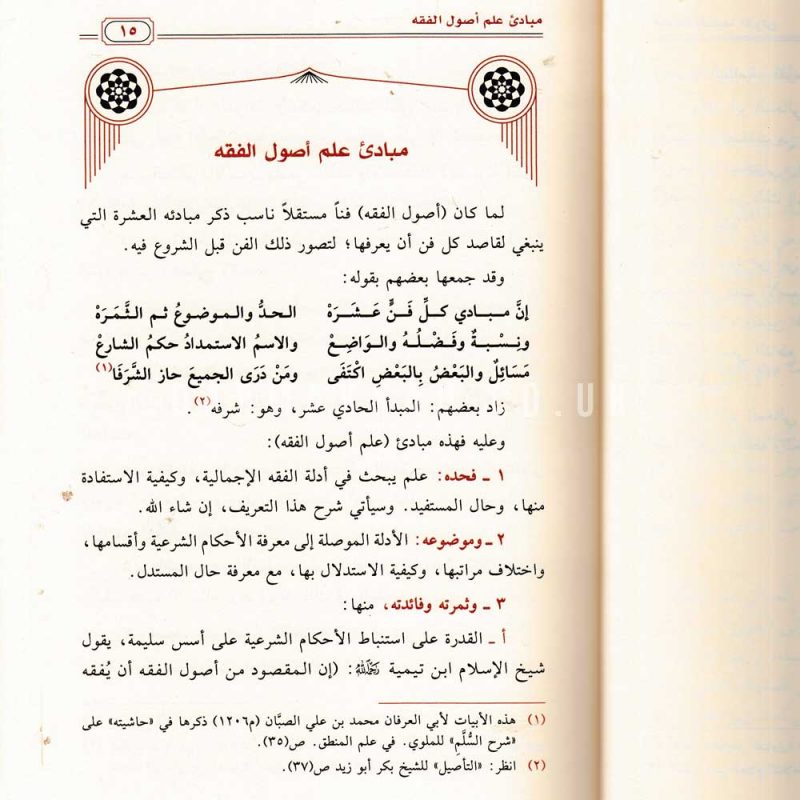 مبادئ علم أصول الفقه
١٥
مبادئ علم أصول الفقه
لما كان (أصول الفقه) فناً مستقلاً ناسب ذكر مبادئه العشرة التي
ينبغي لقاصد كل فن أن يعرفها؛ لتصور ذلك الفن قبل الشروع فيه.
وقد جمعها بعضهم بقوله:
إنَّ مـبـادي كـلِّ فَـنٍّ عَـشَـرَهْ الحدُّ والموضوعُ ثم الثَّمَرَهْ
ونِـسْـبـةٌ وفَـضْـلُـهُ والـوَاضِـعْ والاسمُ الاستمدادُ حكمُ الشارعْ
مَسَائِلٌ والبَعْضُ بِالبَعْضِ اكْتَفَى ومَنْ دَرَى الجميعَ حاز الشَّرَفَا(١)
زاد بعضهم: المبدأ الحادي عشر، وهو: شرفه(٢).
وعليه فهذه مبادئ (علم أصول الفقه):
١ ـ فحده: علم يبحث في أدلة الفقه الإجمالية، وكيفية الاستفادة
منها، وحال المستفيد. وسيأتي شرح هذا التعريف، إن شاء الله.
٢ ـ وموضوعه: الأدلة الموصلة إلى معرفة الأحكام الشرعية وأقسامها،
واختلاف مراتبها، وكيفية الاستدلال بها، مع معرفة حال المستدل.
٣ ـ وثمرته وفائدته، منها:
أ ـ القدرة على استنباط الأحكام الشرعية على أسس سليمة، يقول
شيخ الإسلام ابن تيمية رحمه الله: (إن المقصود من أصول الفقه أن يُفقه
(١) هذه الأبيات لأبي العرفان محمد بن علي الصبَّان (م١٢٠٦) ذكرها في «حاشيته» على
«شرح السُّلَّمِ» للملوي. في علم المنطق. ص(٣٥).
(٢) انظر: «التأصيل» للشيخ بكر أبو زيد ص(٣٧).